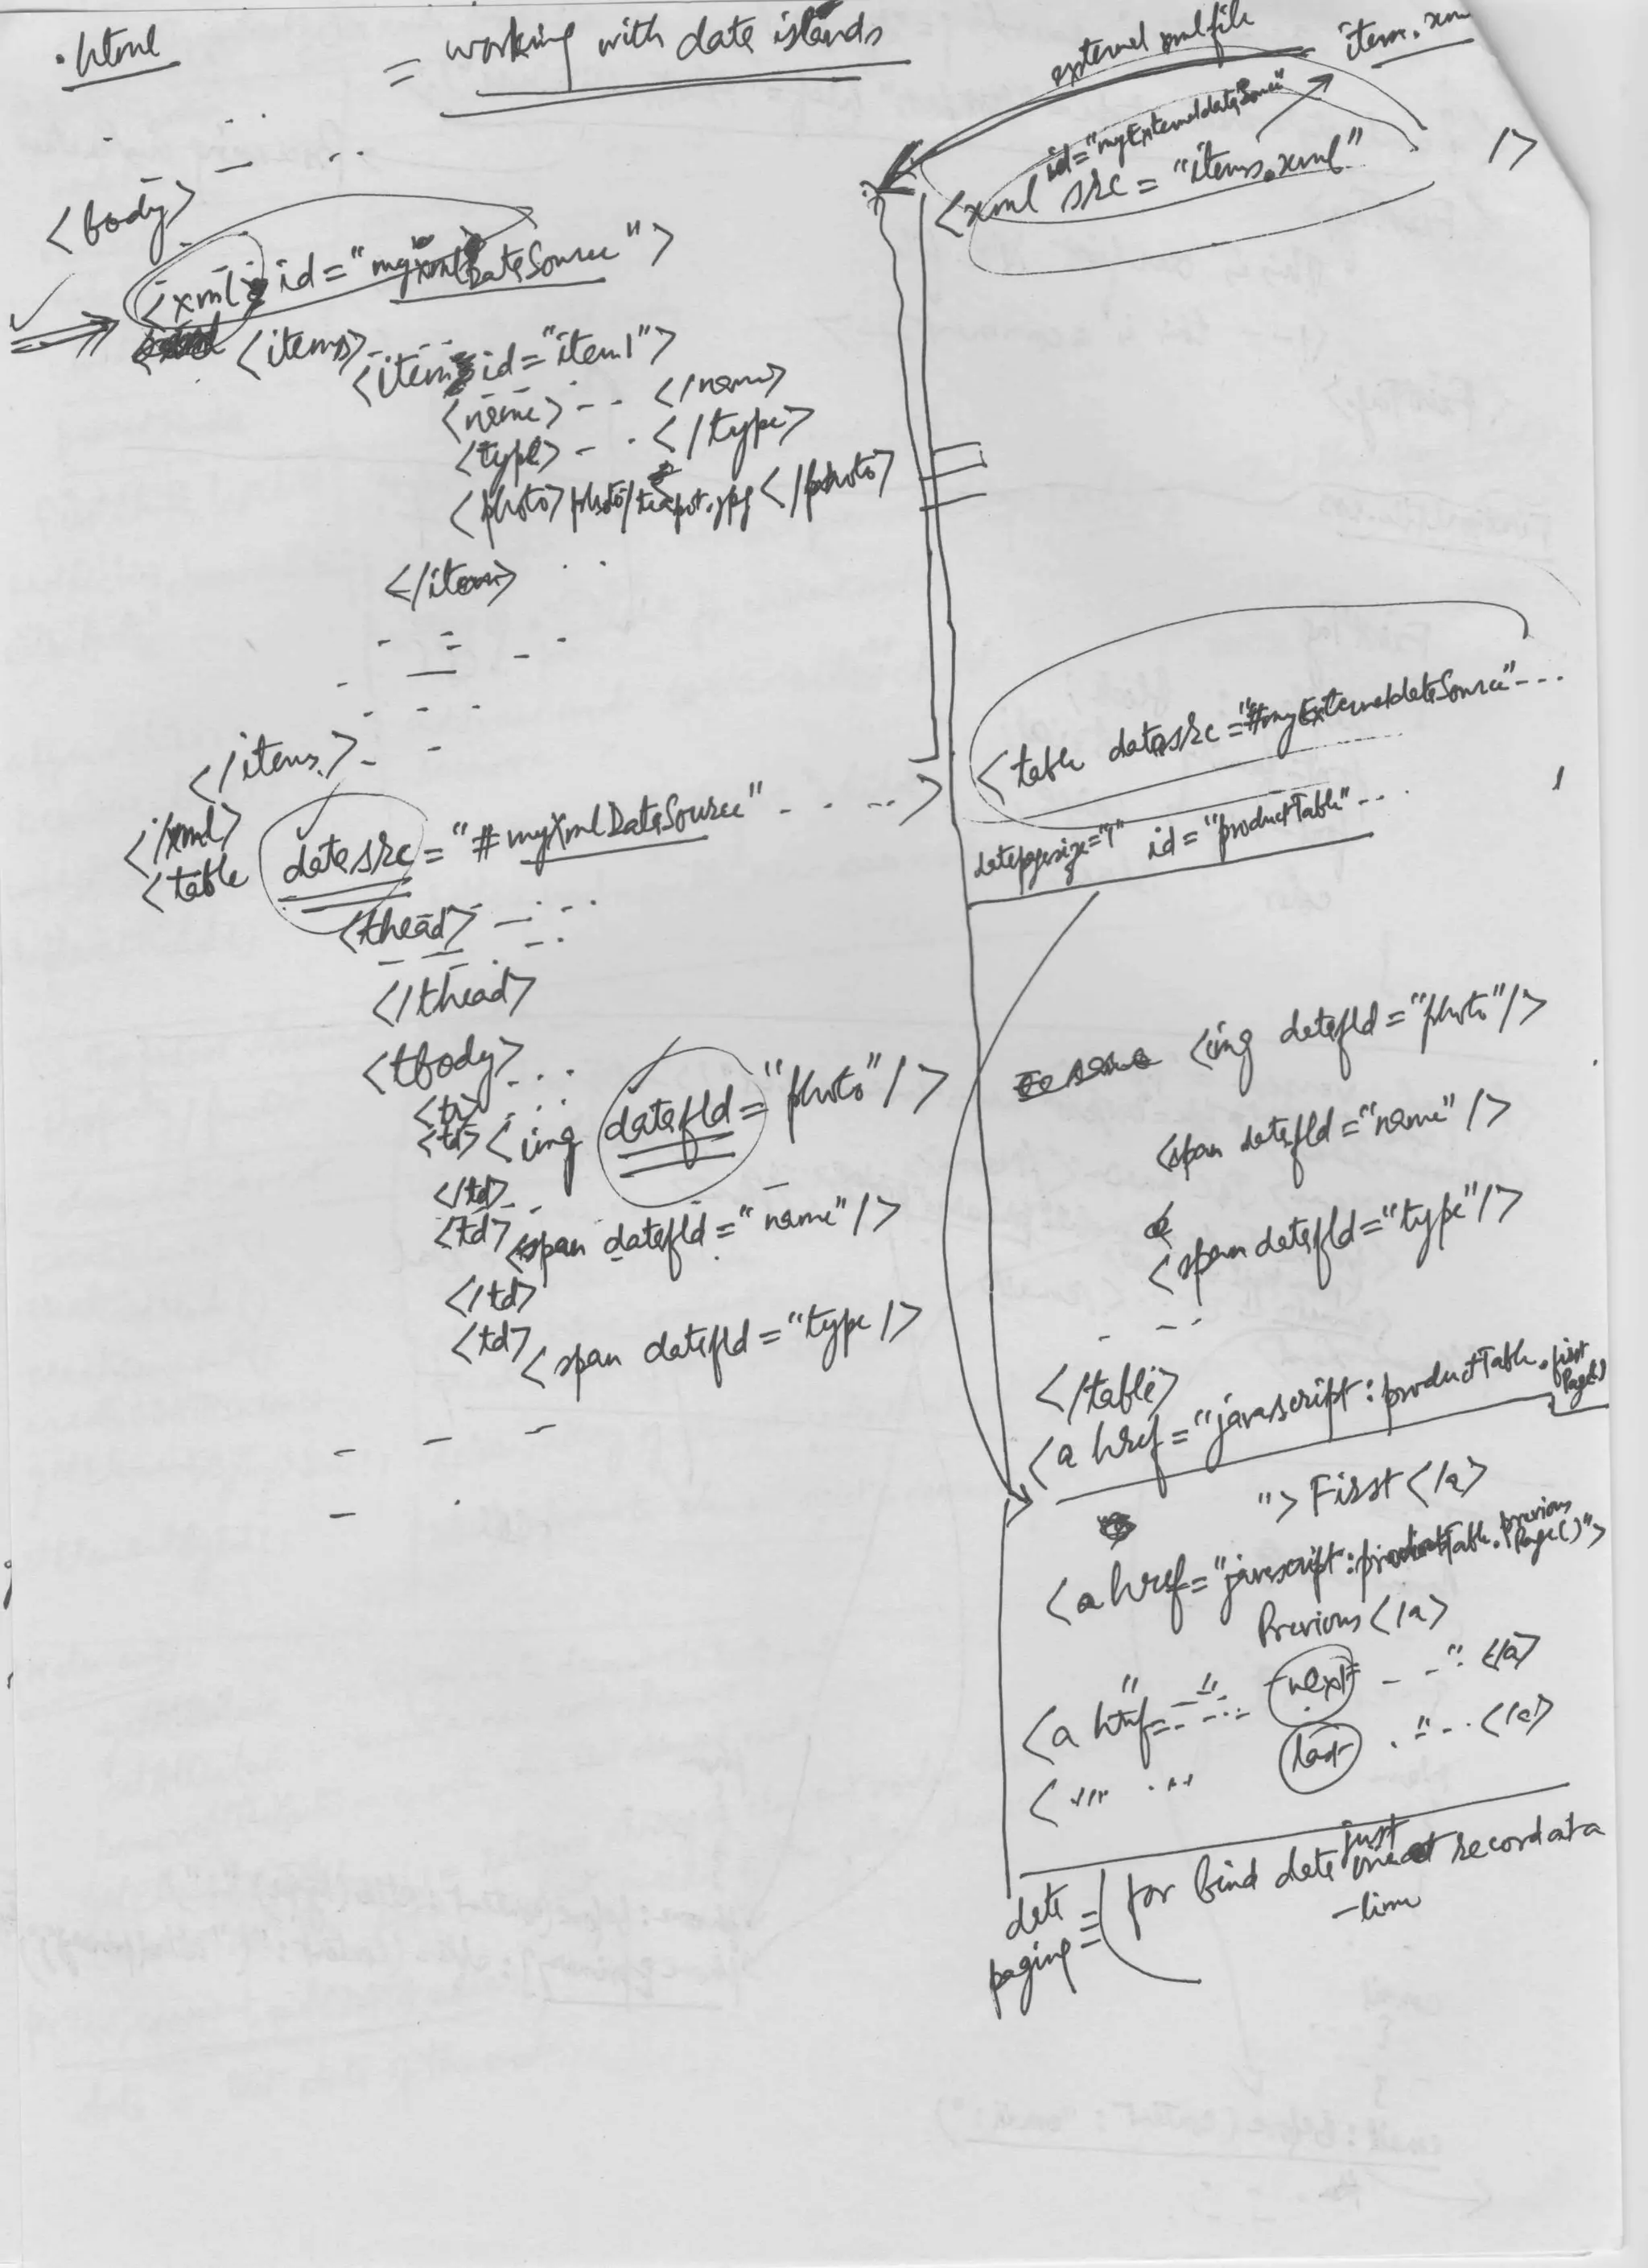 .html = working with data islands
<body>
<xml id="myXmlDataSource">
<items>
<item id="item1">
<name> -- </name>
<type> -- </type>
<photo>photo/teapot.jpg</photo>
</item>
</items>
</xml>
<table datasrc="#myXmlDataSource" - - - - >
<thead> - - - -
</thead>
<tbody> - - -
<tr> - - -
<td><img datafld="photo"/>
</td>
<td><span datafld="name"/>
</td>
<td><span datafld="type/>
external xml file item.xm
id="myExternaldataSource"
<xml src="items.xml" />
<table datasrc="#myExternaldataSource"---
datapagesize="1" id="productTable"---
<img datafld="photo"/>
<span datafld="name"/>
<span datafld="type"/>
</table>
<a href="javascript:productTable.first
Page()
">First</a>
<a href="javascript:productTable.previous
Page()">
Previous</a>
<a href=- -"- - next - - " </a>
<"" ... last . "-. </a>
data paging = (for bind data just one record at a
-time